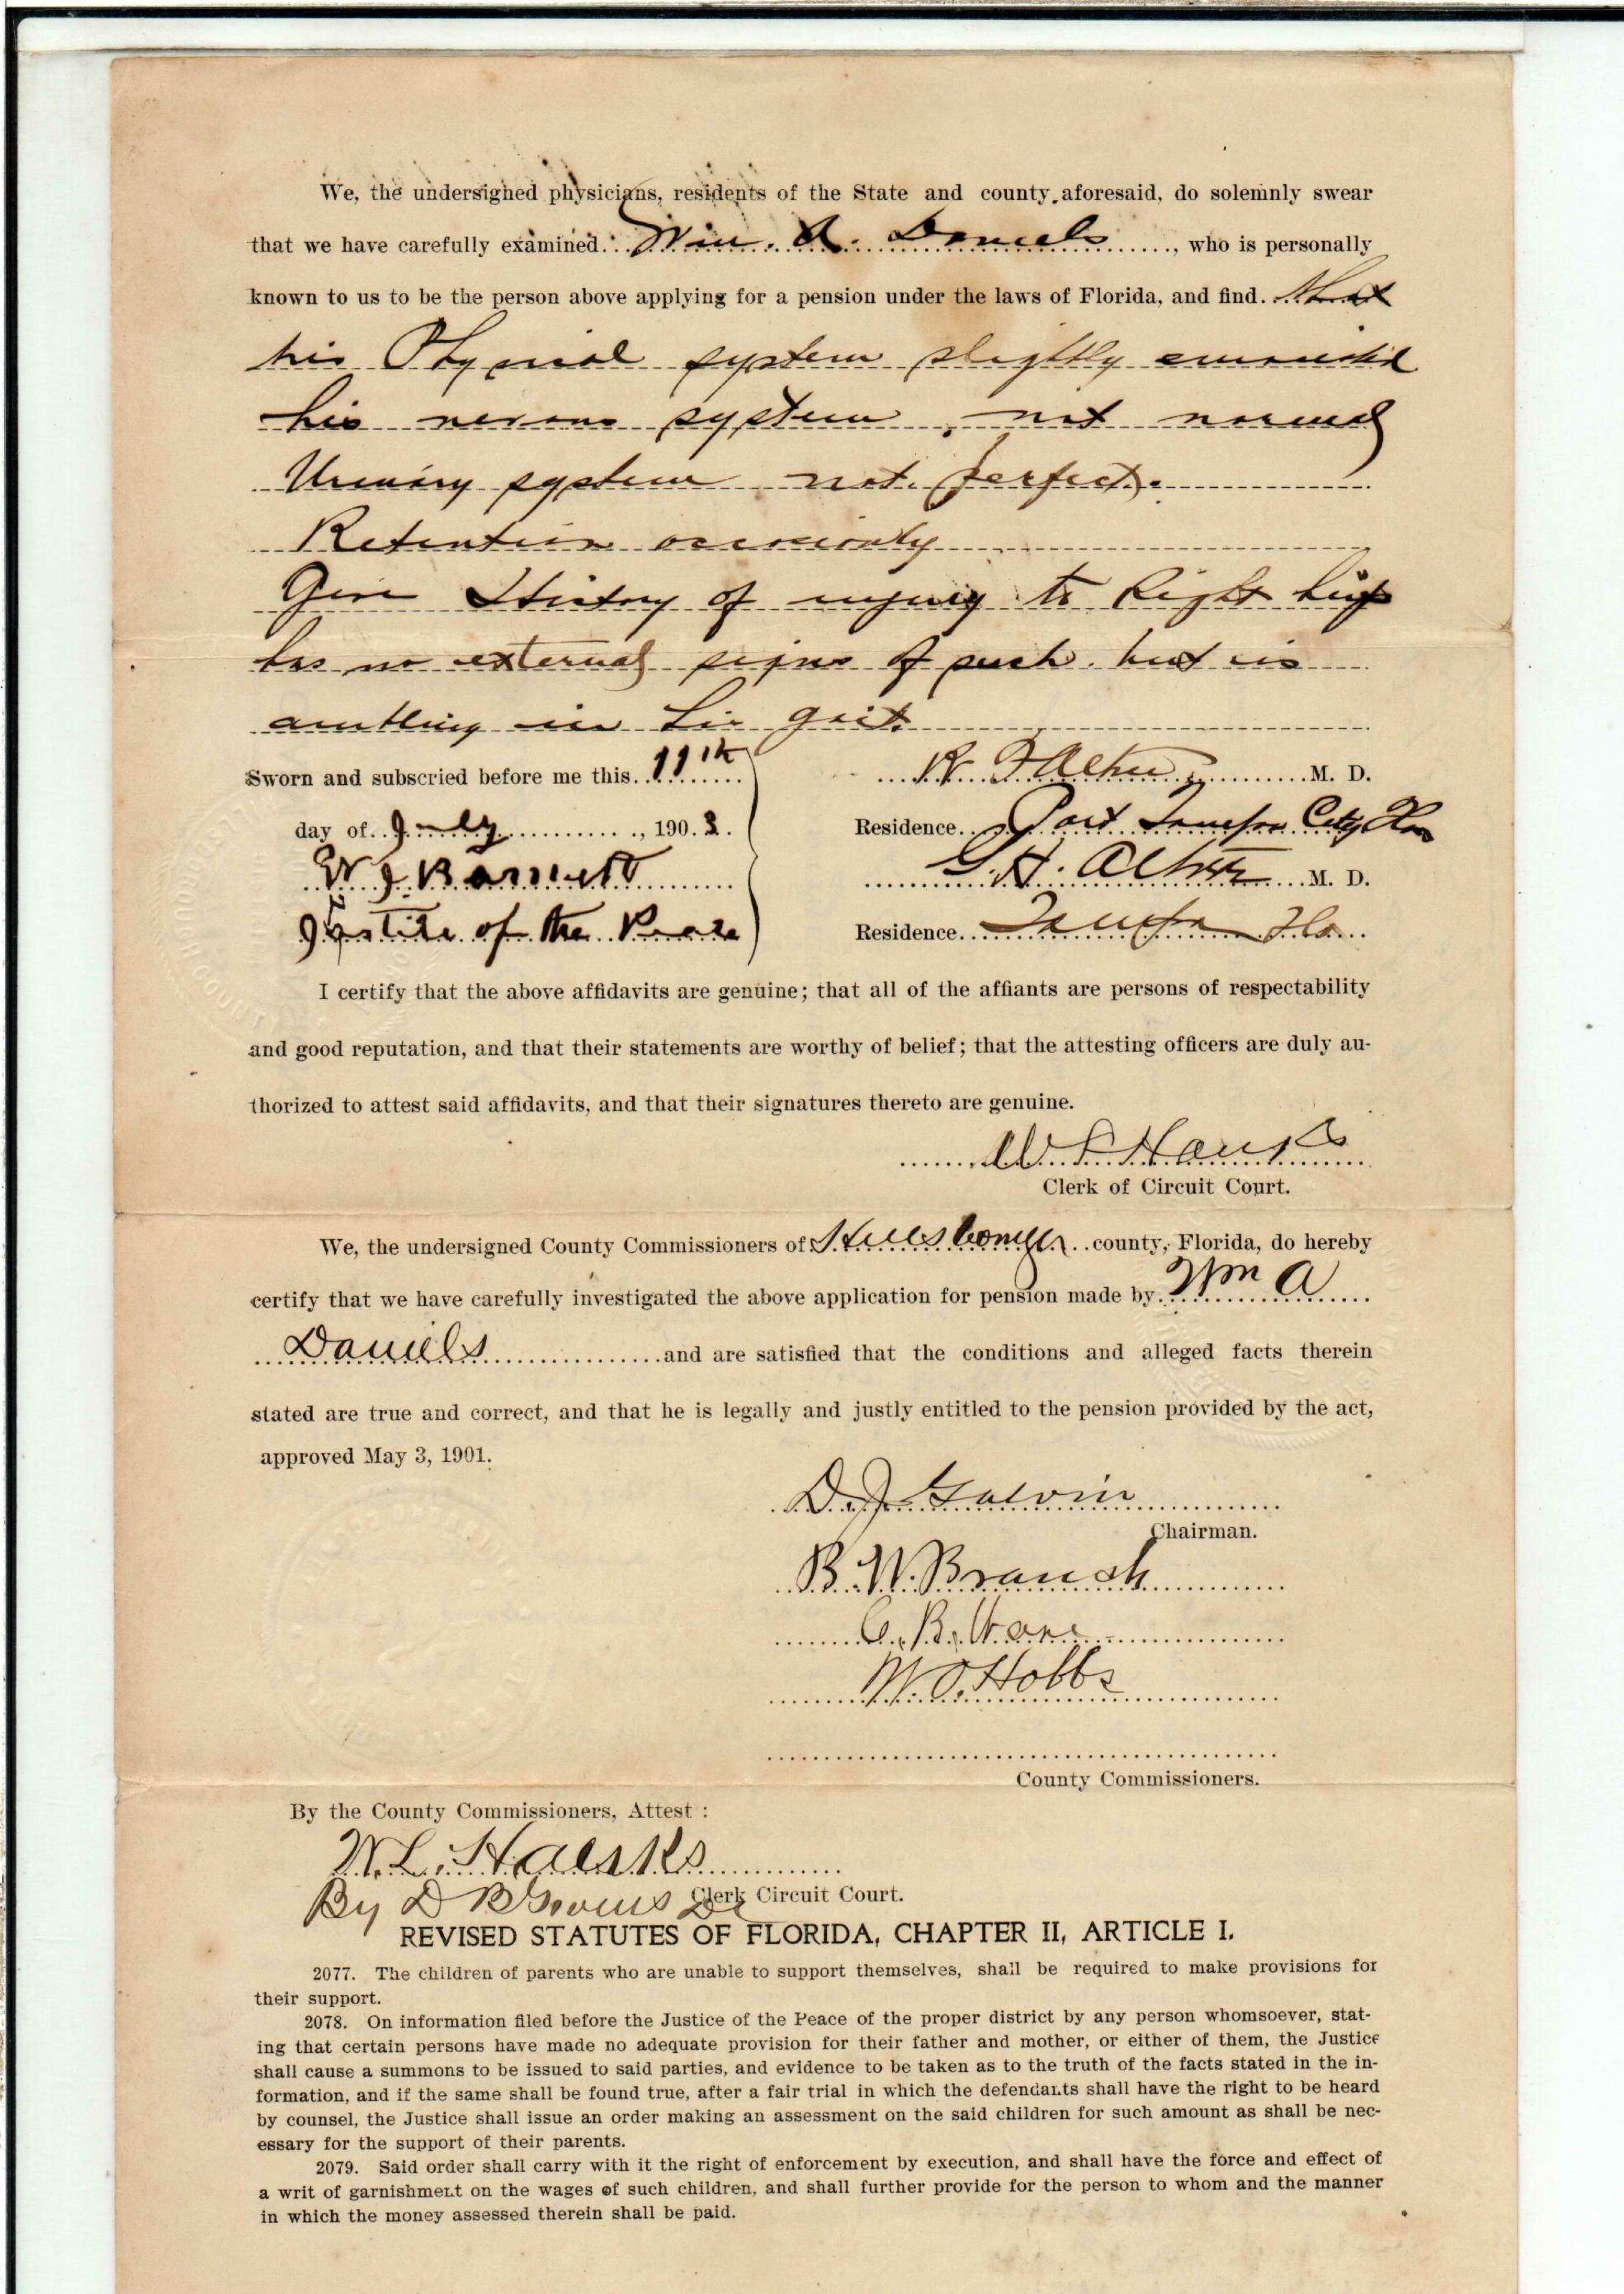 We, the undersigned physicians, residents of the State and county aforesaid, do solemnly swear
that we have carefully examined Wm. A. Daniels, who is personally
known to us to be the person above applying for a pension under the laws of Florida, and find. that
his Physical system slightly emaciated
his nervous system, not normal
Urinary system not perfect.
Retention
Give History of injury to Right hip
has no external signs of such but is
in his gait.
Sworn and subscried before me this 11th
M. D.
day of July, 1903.
Residence Port Tampa City Fla
W J Barnett
G. H. M. D.
Justice of the Peace
Residence Tampa Fla
I certify that the above affidavits are genuine; that all of the affiants are persons of respectability
and good reputation, and that their statements are worthy of belief; that the attesting officers are duly au-
thorized to attest said affidavits, and that their signatures thereto are genuine.
Clerk of Circuit Court.
We, the undersigned County Commissioners of Hillsborough county, Florida, do hereby
certify that we have carefully investigated the above application for pension made by Wm A
Daniels and are satisfied that the conditions and alleged facts therein
stated are true and correct, and that he is legally and justly entitled to the pension provided by the act,
approved May 3, 1901.
D. J. Galvin
Chairman.
B. W. Branch
C. B.
W. O. Hobbs
County Commissioners.
By the County Commissioners, Attest :
W. L.
Clerk Circuit Court.
By D B Givens DC
REVISED STATUTES OF FLORIDA, CHAPTER II, ARTICLE I.
2077. The children of parents who are unable to support themselves, shall be required to make provisions for
their support.
2078. On information filed before the Justice of the Peace of the proper district by any person whomsoever, stat-
ing that certain persons have made no adequate provision for their father and mother, or either of them, the Justice
shall cause a summons to be issued to said parties, and evidence to be taken as to the truth of the facts stated in the in-
formation, and if the same shall be found true, after a fair trial in which the defendants shall have the right to be heard
by counsel, the Justice shall issue an order making an assessment on the said children for such amount as shall be nec-
essary for the support of their parents.
2079. Said order shall carry with it the right of enforcement by execution, and shall have the force and effect of
a writ of garnishment on the wages of such children, and shall further provide for the person to whom and the manner
in which the money assessed therein shall be paid.